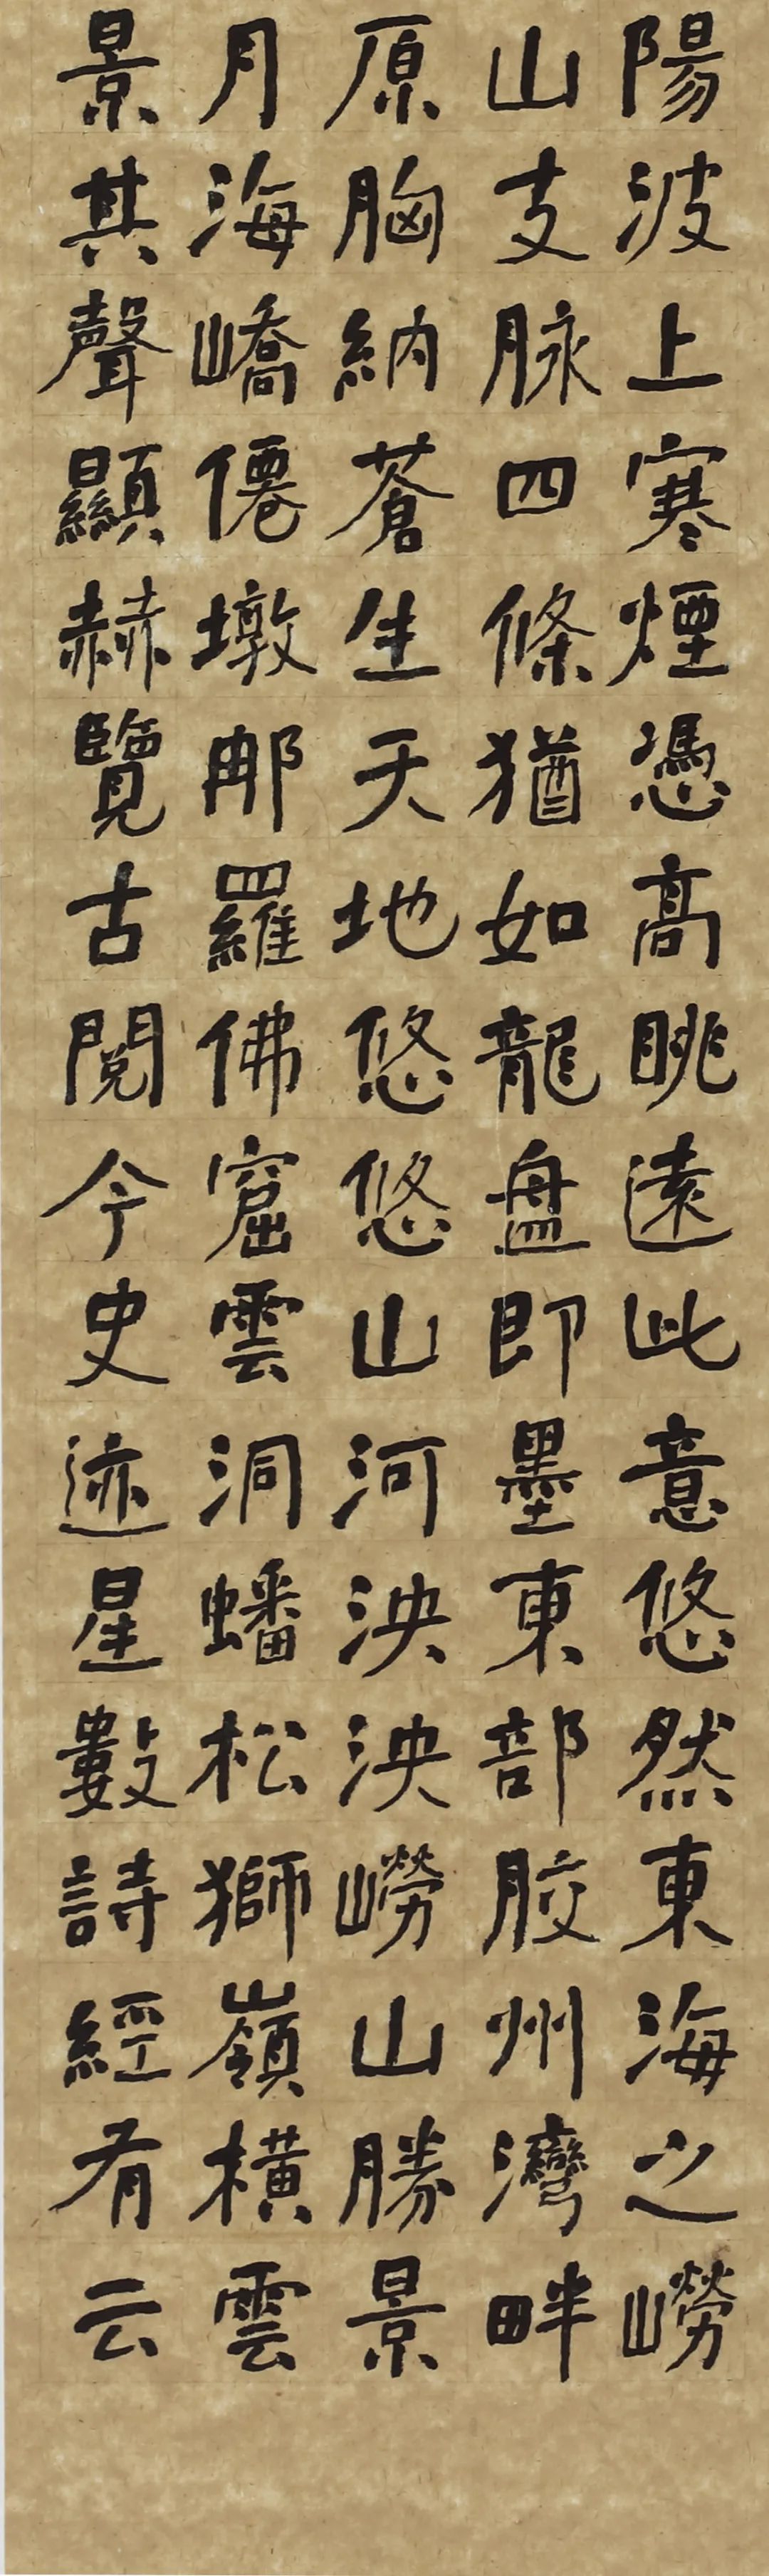 陽波上寒煙憑高眺遠此意悠然東海之嶗
山支脉四條猶如龍盤即墨東部胶州灣畔
原胸納蒼生天地悠悠山河泱泱嶗山勝景
月海嶠僊墩那羅佛窟雲洞蟠松獅嶺橫雲
景其聲顯赫覽古閱今史迹星數詩經有云